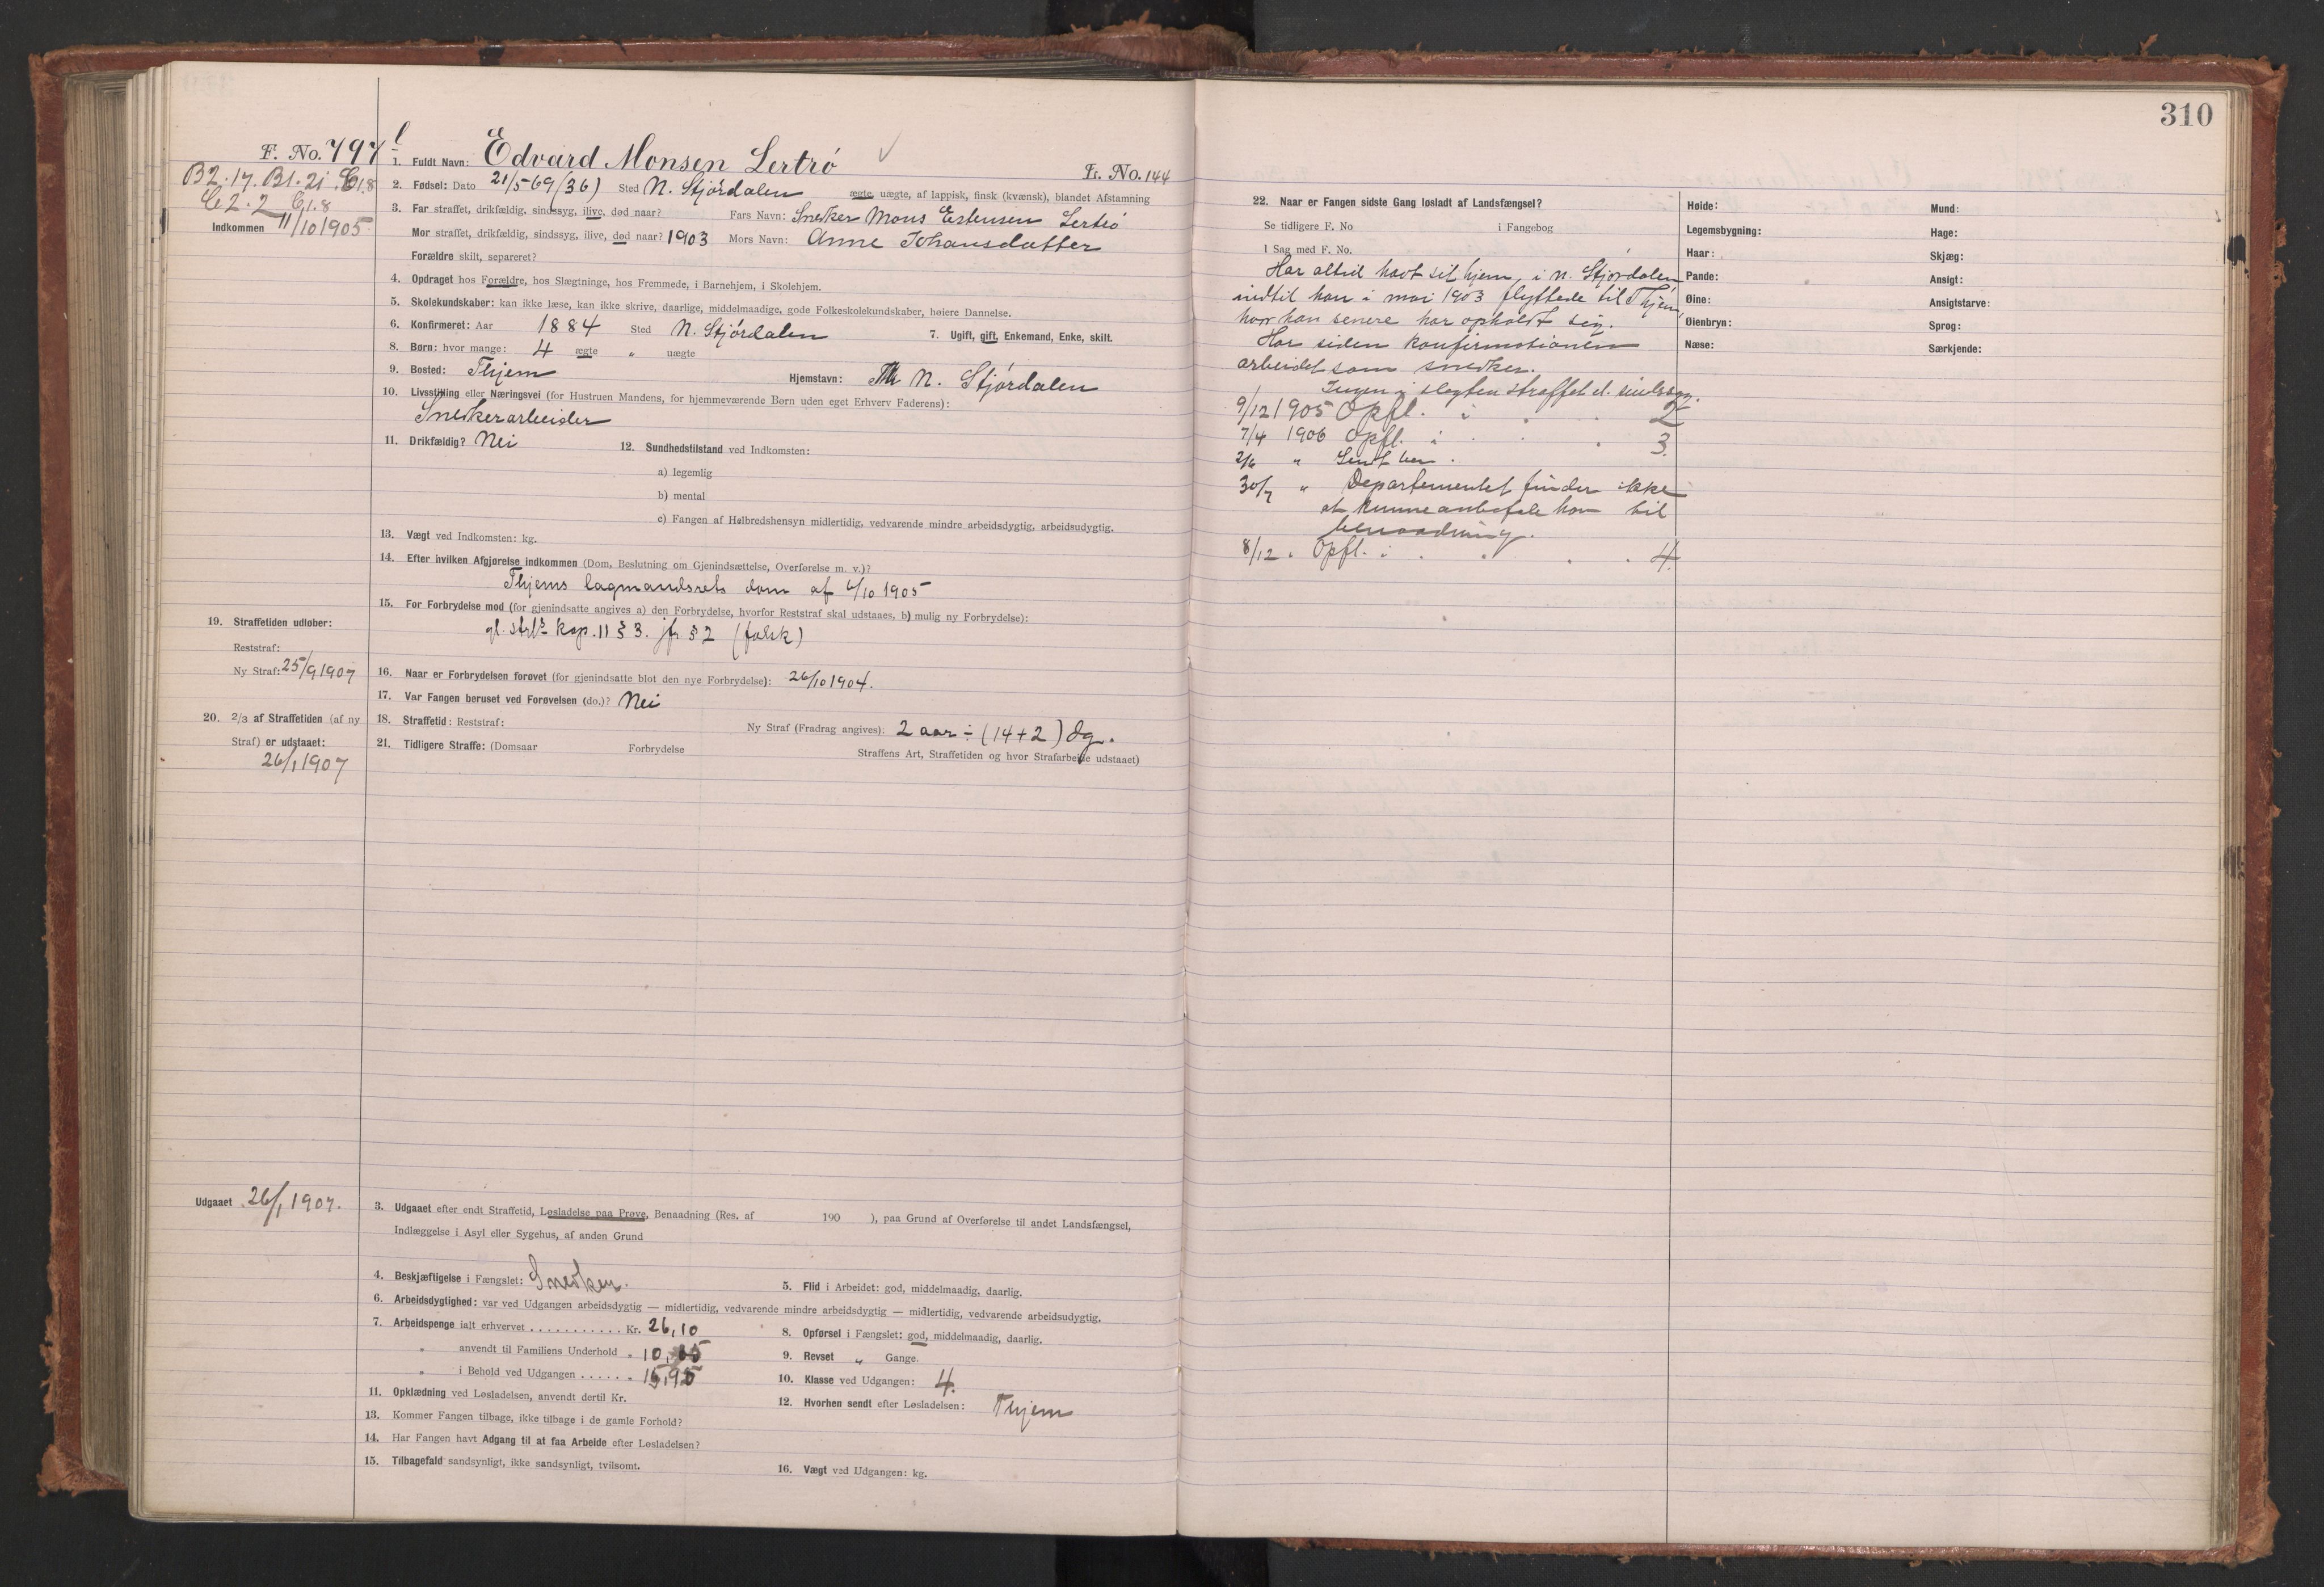 310
F. No. 797 l
B2.17. B1.21. C1.8
C2.2 C1.8
Indkommen 11/10 1905
1. Fuldt Navn: Edvard Monsen Lertrö
Fr. No. 144
2. Fødsel: Dato 21/5 69 (36) Sted N. Stjördalen ægte, uægte, af lappisk, finsk (kvænsk), blandet Afstamning
3. Far straffet, drikfældig, sindssyg, ilive, død naar? Fars Navn: Snedker Mons Estensen Lertrö
Mor straffet, drikfældig, sindssyg, ilive, død naar? 1903 Mors Navn: Anne Johansdatter
Forældre skilt, separeret?
4. Opdraget hos Forældre, hos Slægtninge, hos Fremmede, i Barnehjem, i Skolehjem.
5. Skolekundskaber: kan ikke læse, kan ikke skrive, daarlige, middelmaadige, gode Folkeskolekundskaber, høiere Dannelse.
6. Konfirmeret: Aar 1884 Sted N. Stjördalen 7. Ugift, gift, Enkemand, Enke, skilt.
8. Børn: hvor mange: 4 ægte " uægte
9. Bosted: Thjem Hjemstavn: N. Stjördalen
10. Livsstilling eller Næringsvei (for Hustruen Mandens, for hjemmeværende Børn uden eget Erhverv Faderens):
Snedkerarbeider
11. Drikfældig? Nei 12. Sundhedstilstand ved Indkomsten:
a) legemlig
b) mental
c) Fangen af Helbredshensyn midlertidig, vedvarende mindre arbeidsdygtig, arbeidsudygtig.
13. Vægt ved Indkomsten: kg.
14. Efter hvilken Afgjørelse indkommen (Dom, Beslutning om Gjenindsættelse, Overførelse m. v.)?
Thjems lagmandsrets dom af 6/10 1905
15. For Forbrydelse mod (for gjenindsatte angives a) den Forbrydelse, hvorfor Reststraf skal udstaaes, b) mulig ny Forbrydelse):
gl. strl. kap. 11 § 3. jfr § 2 (falsk)
19. Straffetiden udløber:
Reststraf:
Ny Straf: 25/9 1907
16. Naar er Forbrydelsen forøvet (for gjenindsatte blot den nye Forbrydelse): 26/10 1904.
17. Var Fangen beruset ved Forøvelsen (do.)? Nei
20. 2/3 af Straffetiden (af ny
Straf) er udstaaet:
26/1 1907
18. Straffetid: Reststraf: Ny Straf (Fradrag angives): 2 aar ÷ (14+2) dg.
21. Tidligere Straffe: (Domsaar Forbrydelse Straffens Art, Straffetiden og hvor Strafarbeide udstaaet)
Udgaaet 26/1 1907.
3. Udgaaet efter endt Straffetid, Løsladelse paa Prøve, Benaadning (Res. af 190 ), paa Grund af Overførelse til andet Landsfængsel,
Indlæggelse i Asyl eller Sygehus, af anden Grund
4. Beskjæftigelse i Fængslet: Snedker. 5. Flid i Arbeidet: god, middelmaadig, daarlig.
6. Arbeidsdygtighed: var ved Udgangen arbeidsdygtig — midlertidig, vedvarende mindre arbeidsdygtig — midlertidig, vedvarende arbeidsudygtig.
7. Arbeidspenge ialt erhvervet . . . . . . . . . . . Kr. 26,10 8. Opførsel i Fængslet: god, middelmaadig, daarlig.
" anvendt til Familiens Underhold " 10, 9. Revset " Gange.
" i Behold ved Udgangen . . . . . . " 10. Klasse ved Udgangen: 4.
11. Opklædning ved Løsladelsen, anvendt dertil Kr. 12. Hvorhen sendt efter Løsladelsen: Thjem
13. Kommer Fangen tilbage, ikke tilbage i de gamle Forhold?
14. Har Fangen havt Adgang til at faa Arbeide efter Løsladelsen?
15. Tilbagefald sandsynligt, ikke sandsynligt, tvilsomt. 16. Vægt ved Udgangen: kg.
22. Naar er Fangen sidste Gang løsladt af Landsfængsel?
Se tidligere F. No i Fangebog
I Sag med F. No.
Har altid havt sit hjem i N. Stjördalen
indtil han i mai 1903 flyttede til Thjem,
hvor han senere har opholdt sig.
Har siden konfirmationen
arbeidet som snedker.
Ingen i slegten straffet el. sindssyg.
9/12 1905 Opfl. i 2
7/4 1906 Opfl. i 3.
2/6 " Sendt ben.
30/7 " Departementet finder ikke
at kunne anbefale ham til
benaadning.
8/12 " Opfl. i 4.
Høide: Mund:
Legemsbygning: Hage:
Haar: Skjæg:
Pande: Ansigt:
Øine: Ansigtstarve:
Øienbryn: Sprog:
Næse: Særkjende: